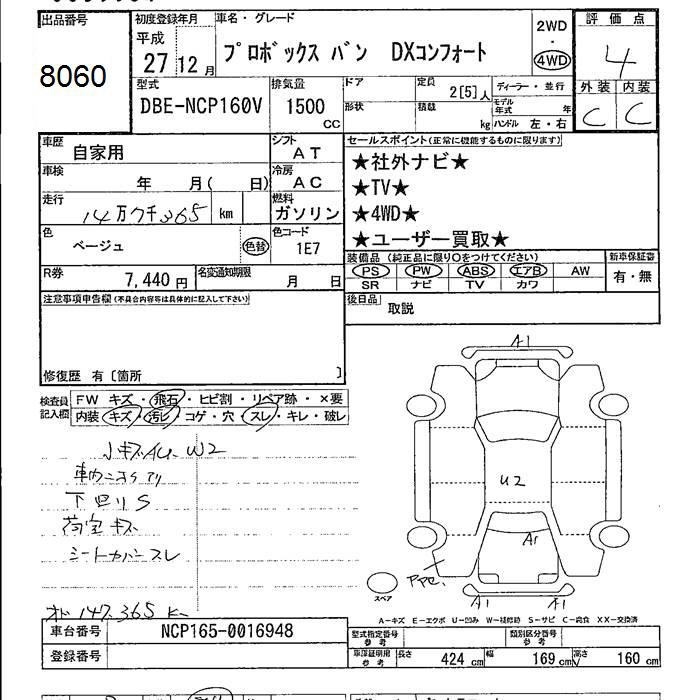 出品番号
8060
初度登録年月
平成
27 12月
車名・グレード
プロボックス バン DXコンフォート
2WD
・
4WD
評価点
4
外装 内装
C C
型式
DBE-NCP160V
排気量
1500
CC
ドア
形状
定員
2[5]人
積載
kg
ディーラー・並行
モデル年式 年
ハンドル 左・右
車歴
自家用
シフト
AT
車検
年 月( 日)
冷房
AC
走行
14万7千365 km
燃料
ガソリン
色
ベージュ
色替
色コード
1E7
R券
7,440円
名変通知期限
月 日
セールスポイント(正常に機能するものに限ります)
★社外ナビ★
★TV★
★4WD★
★ユーザー買取★
装備品(純正品に限り○をつけてください)
PS PW ABS エアB AW
SR ナビ TV カワ
新車保証書
有・無
後日品 取説
注意事項申告欄(不具合内容等は具体的に記入して下さい)
修復歴 有〔箇所 〕
検査員
記入欄
FW キズ・飛石・ヒビ割・リペア跡・×要
内装 キズ・汚レ・コゲ・穴・スレ・キレ・破レ
小キズAU、W2
下回りS
荷室キズ
シートカバースレ
147,365 K
A1
U2
A1
A1 A1
スペア
A-キズ E-エクボ U-凹み W-補修跡 S-サビ C-腐食 XX-交換済
車台番号 NCP165-0016948
登録番号
型式指定番号
参考
類別区分番号
参考
車庫証明用
参考
長さ 424 cm 幅 169 cm 高さ 160 cm